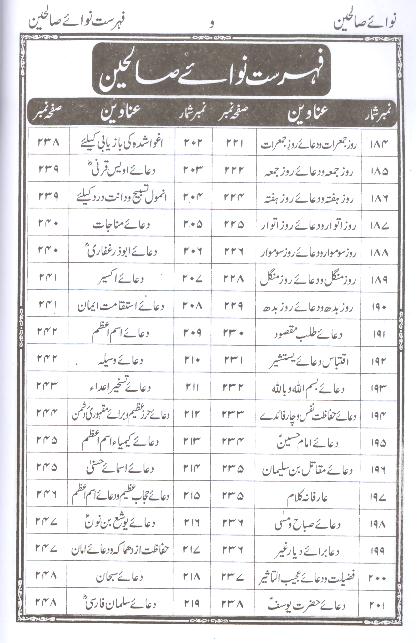 نوائے صالحین و فہرست نوائے صالحین
فہرست نوائے صالحین
نمبر شمار عناوین صفحہ نمبر نمبر شمار عناوین صفحہ نمبر
۱۸۴ روز جمعرات و دعائے روز جمعرات ۲۲۱ ۲۰۲ اغوا شدہ کی بازیابی کیلئے ۲۳۸
۱۸۵ روز جمعہ و دعائے روز جمعہ ۲۲۲ ۲۰۳ دعائے اویس قرنیؓ ۲۳۹
۱۸۶ روز ہفتہ و دعائے روز ہفتہ ۲۲۴ ۲۰۴ انمول تسبیح و دانت درد کیلئے ۲۳۹
۱۸۷ روز اتوار و دعائے روز اتوار ۲۲۵ ۲۰۵ دعائے مناجات ۲۴۰
۱۸۸ روز سوموار و دعائے روز سوموار ۲۲۶ ۲۰۶ دعائے ابوذر غفاریؓ ۲۴۰
۱۸۹ روز منگل و دعائے روز منگل ۲۲۸ ۲۰۷ دعائے اکسیر ۲۴۱
۱۹۰ روز بدھ و دعائے روز بدھ ۲۲۹ ۲۰۸ دعائے استقامت ایمان ۲۴۱
۱۹۱ دعائے طلب مقصود ۲۳۰ ۲۰۹ دعائے اسم اعظم ۲۴۲
۱۹۲ اقتباس دعائے یستشیر ۲۳۱ ۲۱۰ دعائے وسیلہ ۲۴۲
۱۹۳ دعائے بسم اللہ و باللہ ۲۳۲ ۲۱۱ دعائے تسخیر اعداء ۲۴۳
۱۹۴ دعائے حفاظت نفس و چار فائدے ۲۳۳ ۲۱۲ دعائے حرز عظیم و برائے مقہوری دشمن ۲۴۴
۱۹۵ دعائے امام حسینؑ ۲۳۴ ۲۱۳ دعائے کیمیاء اسم اعظم ۲۴۵
۱۹۶ دعائے مقاتل بن سلیمان ۲۳۵ ۲۱۴ دعائے اسمائے حسنیٰ ۲۴۵
۱۹۷ عارفانہ کلام ۲۳۵ ۲۱۵ دعائے حجاب عظیم و دعائے اسم اعظم ۲۴۶
۱۹۸ دعائے صباح و مسٰی ۲۳۶ ۲۱۶ دعائے یوشع بن نونؑ ۲۴۷
۱۹۹ دعا برائے دیار غیر ۲۳۶ ۲۱۷ حفاظت از دھماکہ و دعائے امان ۲۴۷
۲۰۰ فضیلت و دعائے عجیب التاثیر ۲۳۷ ۲۱۸ دعائے سبحان ۲۴۸
۲۰۱ دعائے حضرت یوسفؑ ۲۳۸ ۲۱۹ دعائے سلمان فارسیؓ ۲۴۸